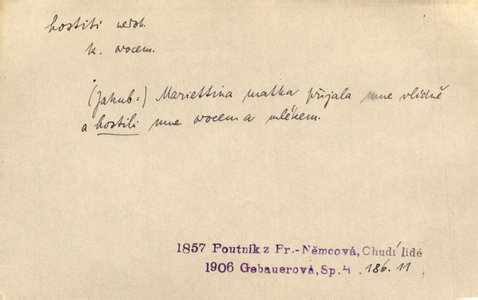 hostiti nedok.
h. ovocem.
(Jakub.) Mariettina matka přijala mne vlídně
a hostili mne ovocem a mlékem.
1857 Poutník z Pr.-Němcová, Chudí lidé
1906 Gebauerová, Sp. 4 . 186. 11